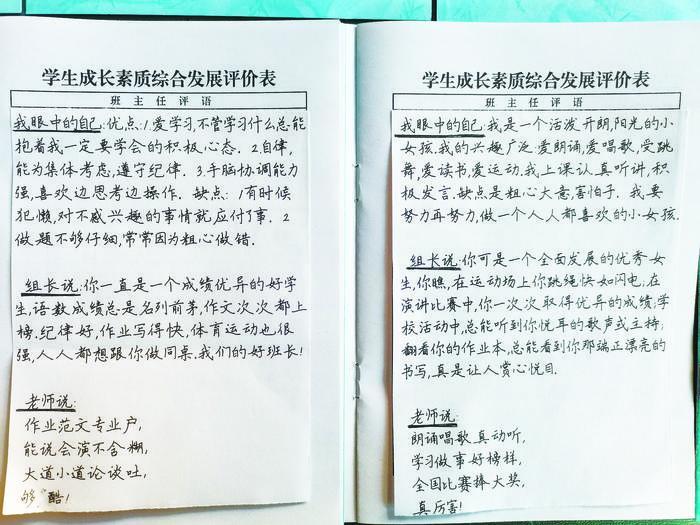 学生成长素质综合发展评价表
班主任评语
我眼中的自己:优点:1.爱学习,不管学习什么总能
抱着我一定要学会的积极心态.2.自律,
能为集体考虑,遵守纪律.3.手脑协调能力
强,喜欢边思考边操作.缺点:1有时候
犯懒,对不感兴趣的事情就应付了事.2
做题不够仔细,常常因为粗心做错.
组长说:你一直是一个成绩优异的好学
生,语数成绩总是名列前茅,作文次次都上
榜.纪律好,作业写得快,体育运动也很
强,人人都想跟你做同桌.我们的好班长!
老师说:
作业范文专业户,
能说会演不含糊,
大道小道论谈吐,
够酷!
学生成长素质综合发展评价表
班主任评语
我眼中的自己:我是一个活泼开朗,阳光的小
女孩.我的兴趣广泛.爱朗诵,爱唱歌,爱跳
舞,爱读书,爱运动.我上课认真听讲,积
极发言.缺点是粗心大意,害怕子.我要
努力再努力,做一个人人都喜欢的小女孩.
组长说:你可是一个全面发展的优秀女
生,你瞧,在运动场上你跳绳快如闪电;在
演讲比赛中,你一次次取得优异的成绩;学
校活动中,总能听到你悦耳的歌声或主持;
翻看你的作业本,总能看到你那端正漂亮的
书写,真是让人赏心悦目.
老师说:
朗诵唱歌真动听,
学习做事好榜样,
全国比赛捧大奖,
真厉害!